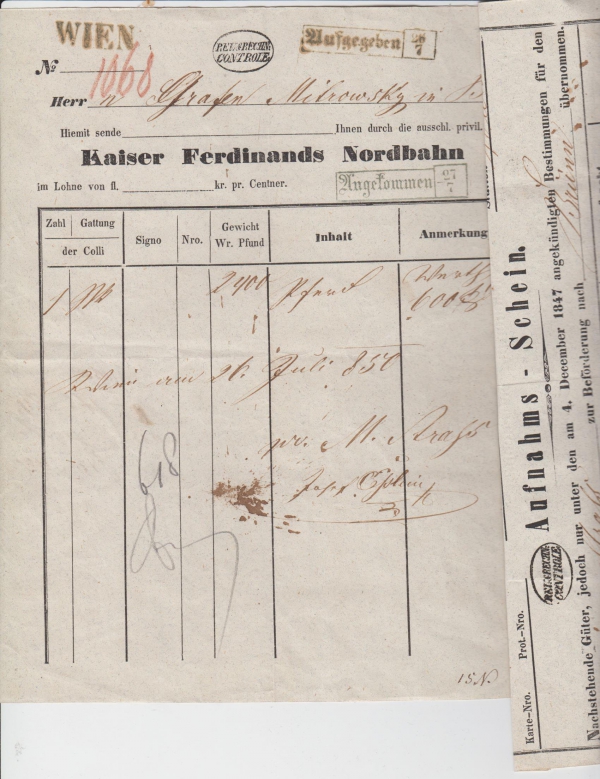 WIEN
REIS.RECHN. CONTROLE
Aufgegeben 26/7
No 1068
Herr n Grafen Mitrowsky in
Hiemit sende Ihnen durch die ausschl. privil.
Kaiser Ferdinands Nordbahn
im Lohne von fl. kr. pr. Centner.
Angekommen 27/7
Zahl Gattung der Colli Signo Nro. Gewicht Wr. Pfund Inhalt Anmerkung
1 2400 Pferd Werth
600
Wien am 26. Juli 850
pr. M.
Josef
618
15 N.
Karte-Nro. Prot.-Nro.
REIS.RECHN. CONTROLE
Aufnahms-Schein.
Nachstehende Güter, jedoch nur unter den am 4. December 1847 angekündigten Bestimmungen für den
zur Beförderung nach Brünn übernommen.